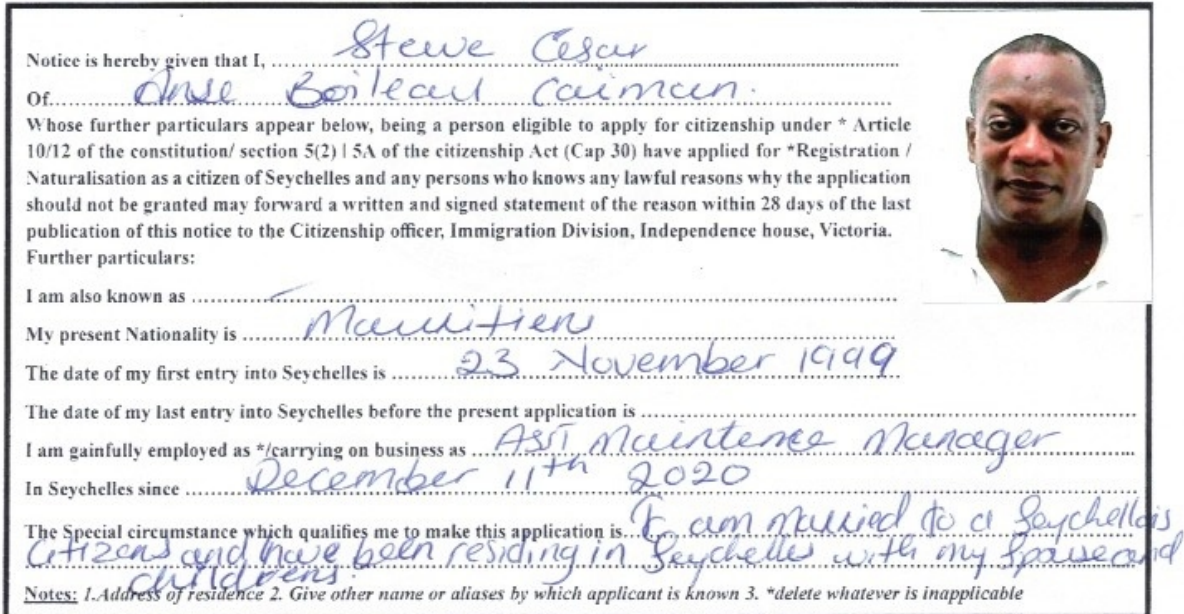 Notice is hereby given that I, Steve Cesar
Of Anse Boileau Caiman.
Whose further particulars appear below, being a person eligible to apply for citizenship under * Article
10/12 of the constitution/ section 5(2) | 5A of the citizenship Act (Cap 30) have applied for *Registration /
Naturalisation as a citizen of Seychelles and any persons who knows any lawful reasons why the application
should not be granted may forward a written and signed statement of the reason within 28 days of the last
publication of this notice to the Citizenship officer, Immigration Division, Independence house, Victoria.
Further particulars:
I am also known as
My present Nationality is Mauritiens
The date of my first entry into Seychelles is 23 November 1999
The date of my last entry into Seychelles before the present application is
I am gainfully employed as */carrying on business as Asst Maintence Manager
In Seychelles since December 11th 2020
The Special circumstance which qualifies me to make this application is I am married to a Seychellois
Citizens and have been residing in Seychelles with my Spouse and
childrens.
Notes: 1.Address of residence 2. Give other name or aliases by which applicant is known 3. *delete whatever is inapplicable